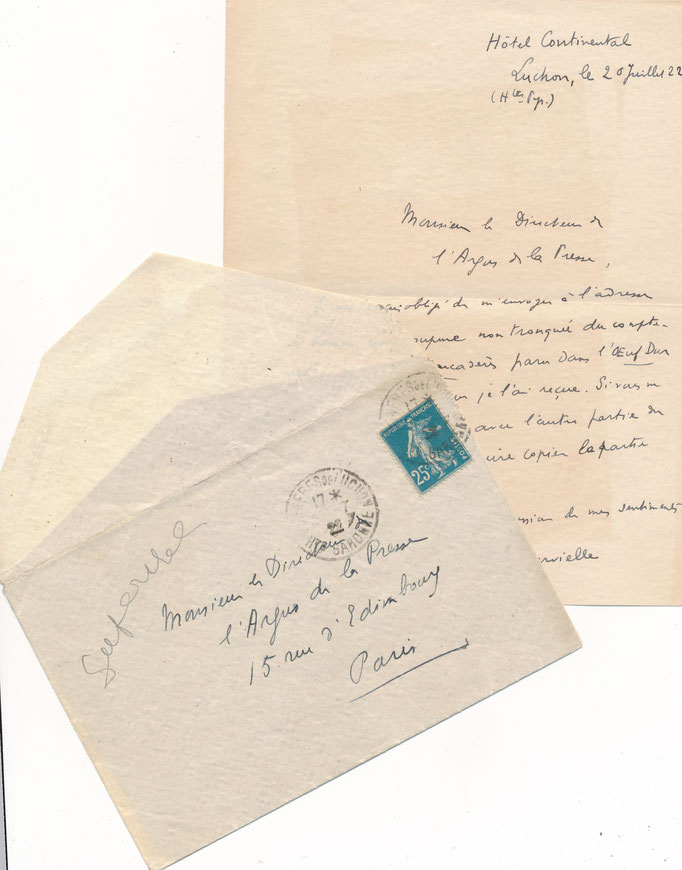 Hôtel Continental
Luchon, le 20 Juillet 22
(Htes Pyr.)
Monsieur le Directeur de
l'Argus de la Presse,
obligé de m'envoyer à l'adresse
coupure non tronquée du compte-
paru dans l'Œuf Dur
je l'ai reçue. Si vous
avec l'autre partie du
copier la partie
de mes sentiments
rvielle
RÉPUBLIQUE FRANÇAISE
POSTES
25c
17 *
LUCHON
17 *
22
HTE GARONNE
Monsieur le Directeur
l'Argus de la Presse
15 rue d'Edimbourg
Paris